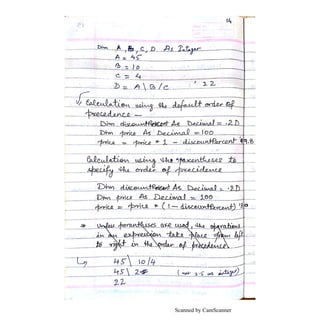 14
Dim A, B, C, D As Integer
A = 45
B = 10
C = 4
D = A \ B / C ' 22
Calculation using the default order of
precedence —
Dim discountPercent As Decimal = .2D
Dim price As Decimal = 100
price = price * 1 - discountPercent '99.8
Calculation using the parentheses to
specify the order of precidence
Dim discountPercent As Decimal = .2D
Dim price As Decimal = 100
price = price * (1 - discountPercent) '80
* Unless parentheses are used, the operations
in an expression take place from left
to right in the order of precedence.
45 \ 10/4
45 \ 2 (not 2.5 as integer)
22
Scanned by CamScanner